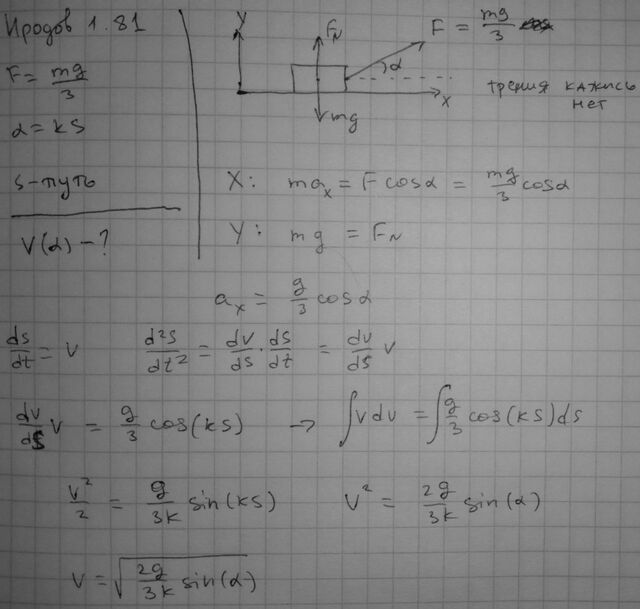 Иродов 1.81
F = mg/3
α = kS
S - путь
V(α) - ?
Y
F_N
F = mg/3
α
X
mg
трения кажись
нет
X: ma_x = F cosα = mg/3 cosα
Y: mg = F_N
a_x = g/3 cosα
ds/dt = V d²S/dt² = dV/dS · ds/dt = dV/dS V
dV/dS V = g/3 cos(kS) → ∫VdV = ∫g/3 cos(kS)dS
V²/2 = g/3k sin(kS) V² = 2g/3k sin(α)
V = √(2g/3k sin(α))